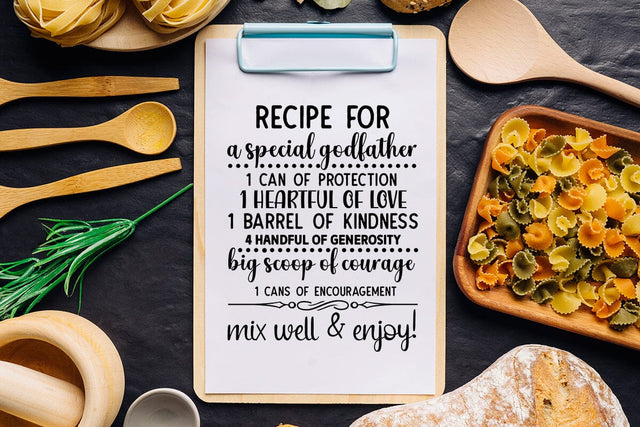 RECIPE FOR
a special godfather
1 CAN OF PROTECTION
1 HEARTFUL OF LOVE
1 BARREL OF KINDNESS
4 HANDFUL OF GENEROSITY
big scoop of courage
1 CANS OF ENCOURAGEMENT
mix well & enjoy!